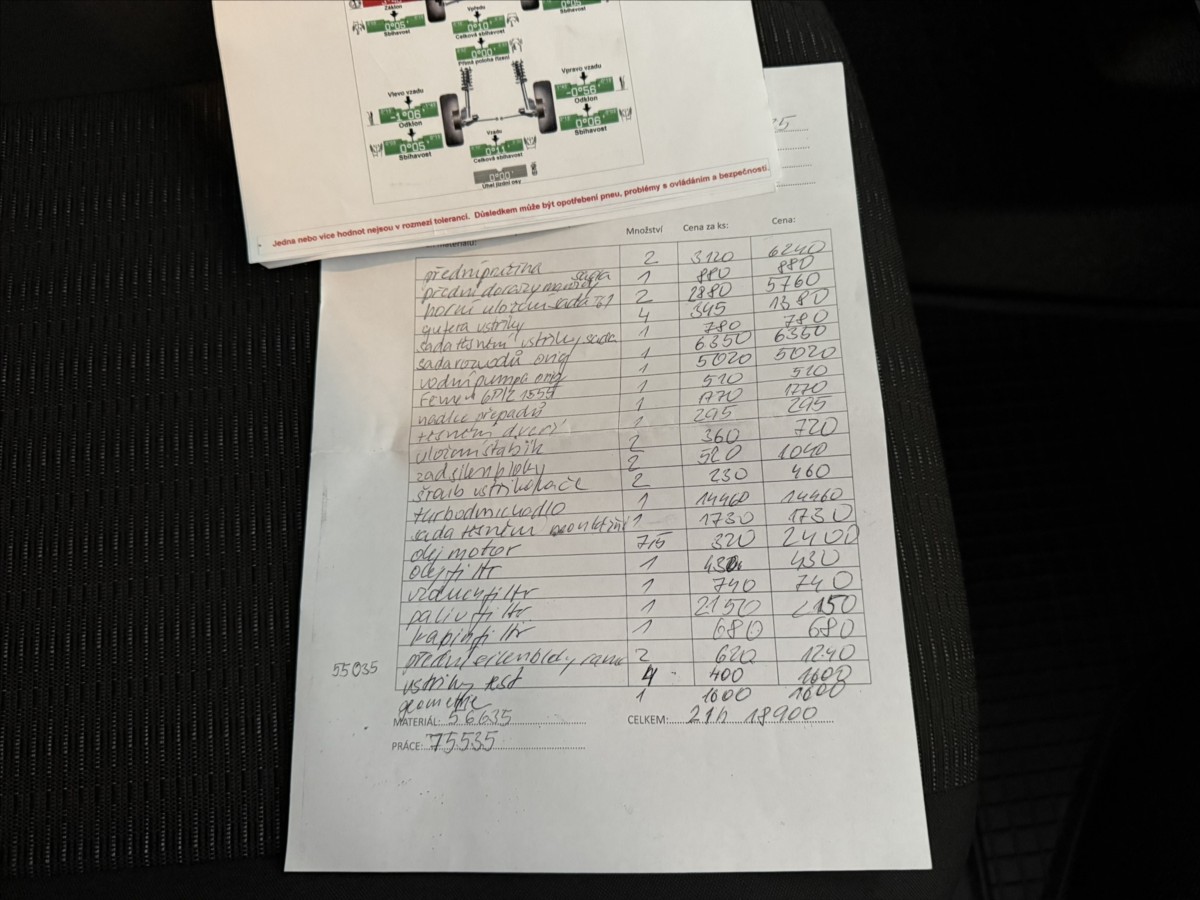 Záklon
0°05'
Sbíhavost
Vpředu
0°10'
Celková sbíhavost
0°00'
Přímá poloha řízení
Sbíhavost
Vlevo vzadu
-1°06'
Odklon
0°05'
Sbíhavost
Vpravo vzadu
-0°56'
Odklon
0°06'
Sbíhavost
Vzadu
0°11'
Celková sbíhavost
0°00'
Úhel jízdní osy
Jedna nebo více hodnot nejsou v rozmezí tolerancí. Důsledkem může být opotřebení pneu, problémy s ovládáním a bezpečností.
Množství Cena za ks: Cena:
přední pružina 2 3120 6240
přední dorazy sada 1 880 880
horní uložení sada 2 2880 5760
gufera vstřiky 4 345 1380
sada těsnění vstřiky sada 1 780 780
sada rozvodů orig 1 6350 6350
vodní pumpa orig 1 5020 5020
1 510 510
hadice přepadů 1 1770 1770
těsnění dveří 1 295 295
uložení stabik 2 360 720
zad silenbloky 2 520 1040
šroub vstřikovače 2 230 460
turbodmychadlo 1 14460 14460
sada těsnění 1 1730 1730
olej motor 7,5 320 2400
olej filtr 1 430 430
vzduch filtr 1 740 740
paliv filtr 1 2150 2150
kabin filtr 1 680 680
přední silenbloky 2 620 1240
vstřiky test 4 400 1600
geometrie 1 1600 1600
55035
MATERIÁL: 56635 CELKEM: 21h 18900
PRÁCE: 75535